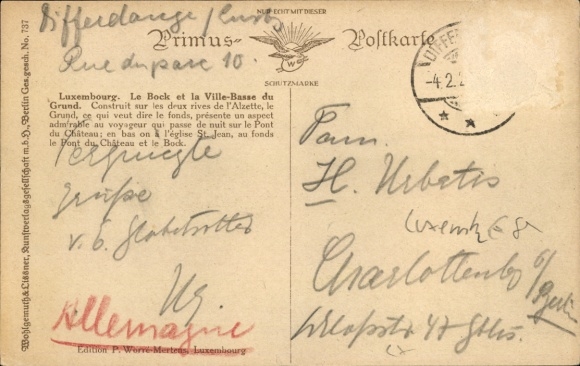 Differdange / Luxbg
Rue du parc 10.
NUR ECHT MIT DIESER
Primus- Postkarte
W
SCHUTZMARKE
DIFFER
-4.2.2
Luxembourg. Le Bock et la Ville-Basse du
Grund. Construit sur les deux rives de l'Alzette, le
Grund, ce qui veut dire le fonds, présente un aspect
admirable au voyageur qui passe de nuit sur le Pont
du Château; en bas on à l'église St. Jean, au fonds
le Pont du Château et le Bock.
Vergnügte
Grüße
v. 6. Globetrotter
Allemagne
Edition P. Worré-Mertens, Luxembourg
Fam.
H. Urbatis
Charlottenbg b/
Berlin
47
Wohlgemuth & Lissner, Kunstverlagsgesellschaft m.b.H, Berlin Ges.gesch. No. 737